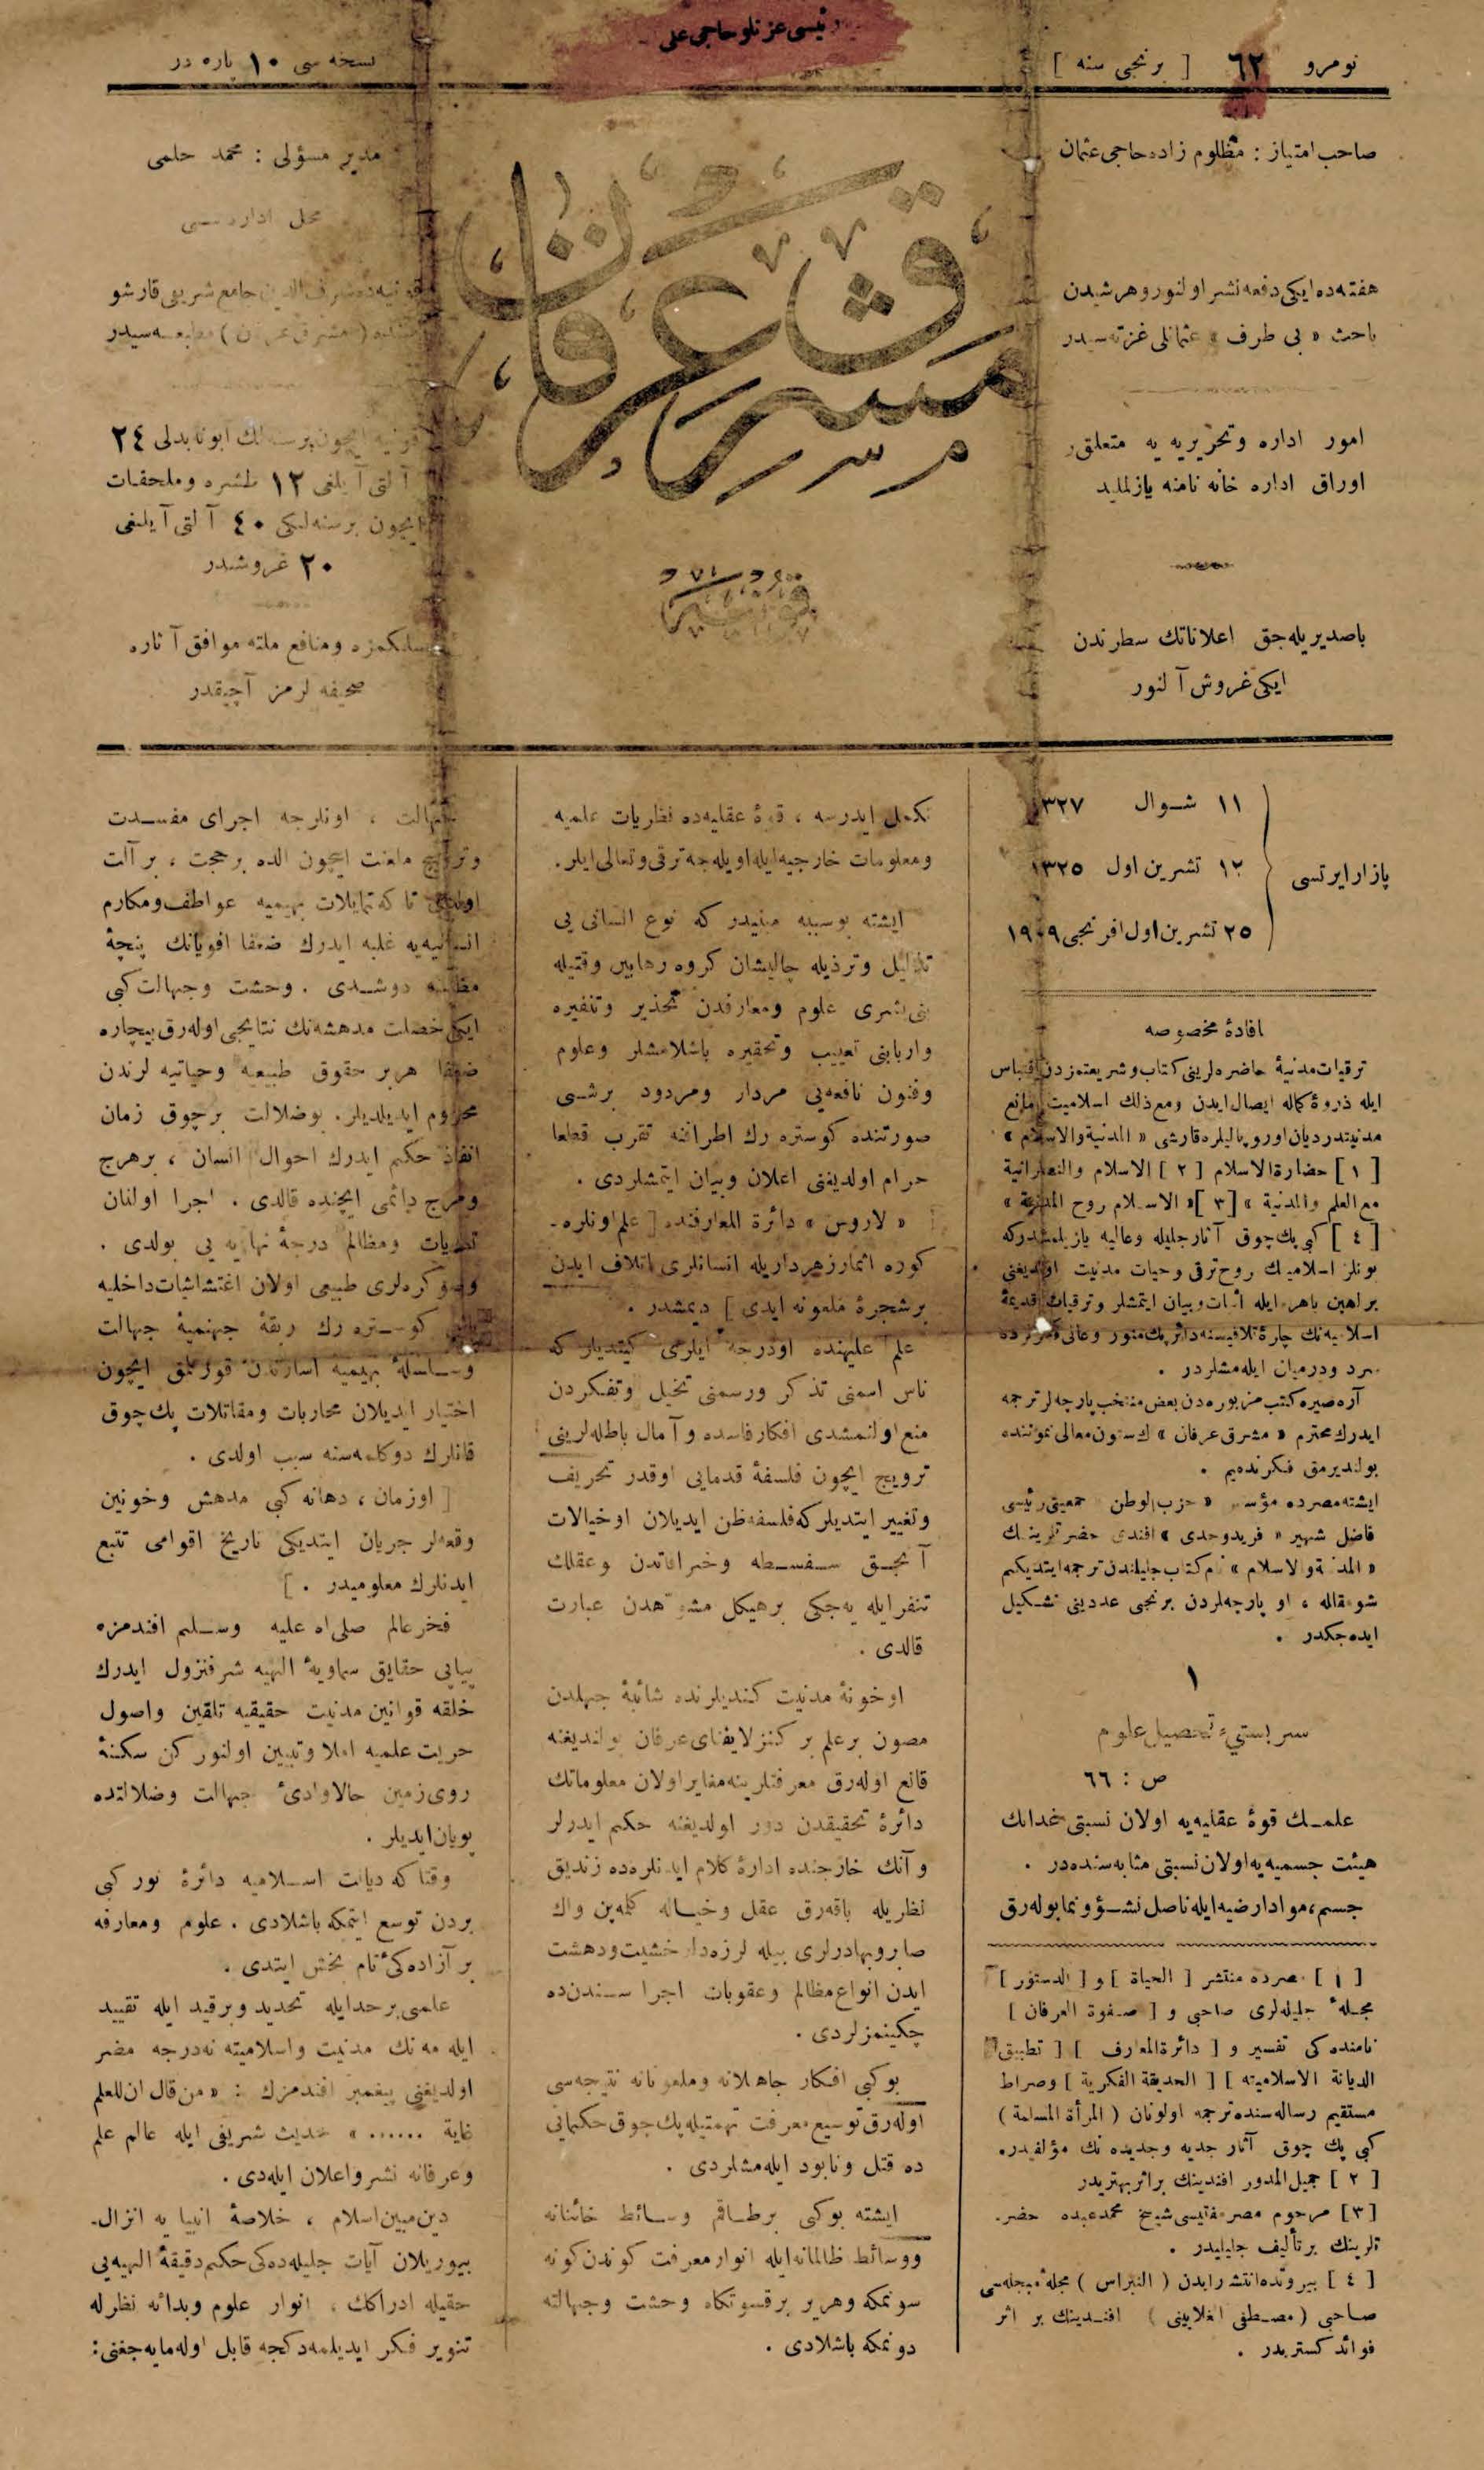 رئيسى عزتلو حاجى على
نومرو ٦٢ [ برنجى سنه ]
نسخه سى ١٠ پاره در
صاحب امتياز : مظلوم زاده حاجى عثمان
هفته ده ايكى دفعه نشر اولنور و هر شيدن
باحث « بى طرف » عثمانلى غزته سيدر
امور اداره و تحريريه يه متعلق
اوراق اداره خانه نامنه يازلمليد
باصديريله جق اعلاناتك سطرندن
ايكى غروش آلنور
مشرق عرفان
قونيه
مدير مسؤلى : محمد حلمى
محل اداره سى
قونيه ده شرف الدين جامع شريفى قارشو
سنده ( مشرق عرفان ) مطبعه سيدر
قونيه ايچون برسنه لك ابونه بدلى ٢٤
آلتى آيلغى ١٢ طشره و ملحقات
ايچون برسنه لكى ٤٠ آلتى آيلغى
٢٠ غروشدر
مسلكمزه و منافع ملته موافق آثاره
صحيفه لرمز آچيقدر
پازار ايرتسى
١١ شوال ١٣٢٧
١٢ تشرين اول ١٣٢٥
٢٥ تشرين اول افرنجى ١٩٠٩
افادۀ مخصوصه
ترقيات مدنيۀ حاضره لرينى كتاب و شريعتمزدن اقتباس
ايله ذروۀ كماله ايصال ايدن و مع ذلك اسلاميت مانع
مدنيتدر ديان اوروپاليلره قارشى « المدنية والاسلام »
[ ١ ] حضارة الاسلام [ ٢ ] الاسلام والنصرانية
مع العلم والمدنية » [ ٣ ] « الاسلام روح المدنية »
[ ٤ ] كبى پك چوق آثار جليله و عاليه يازيلمشدر كه
بونلر اسلاميتك روح ترقى و حيات مدنيت اولديغنى
براهين باهره ايله اثبات و بيان ايتمشلر و ترقيات قديمۀ
اسلاميه نك چارۀ تلافيسنه دائر پك منور و عالى فكرلرده
سرد و درميان ايله مشلردر .
آره صيره كتب مزبوره دن بعض منتخب پارچه لر ترجمه
ايدرك محترم « مشرق عرفان » ك ستون معالى نموننده
بولنديرمق فكرنده يم .
ايشته مصرده مؤسس « حزب الوطن » جمعيتى رئيسى
فاضل شهير « فريد وجدى » افندى حضرتلرينك
« المدنية والاسلام » نام كتاب جليلندن ترجمه ايتديكم
شو مقاله ، او پارچه لردن برنجى عددينى تشكيل
ايده جكدر .
١
سربستىء تحصيل علوم
ص : ٦٦
علمك قوۀ عقليه يه اولان نسبتى غدانك
هيئت جسميه يه اولان نسبتى مثابه سنده در .
جسم ، مواد ارضيه ايله ناصل نشؤ و نما بوله رق
[ ١ ] مصرده منتشر [ الحياة ] و [ الدستور ]
مجلۀ جليله لرى صاحبى و [ صفوة العرفان ]
نامنده كى تفسير و [ دائرة المعارف ] [ تطبيق
الديانة الاسلاميته ] [ الحديقة الفكرية ] و صراط
مستقيم رساله سنده ترجمه اولونان ( المرأة المسلمة )
كبى پك چوق آثار جديه و جديده نك مؤلفيدر .
[ ٢ ] جميل المدور افندينك بر اثر بهتريدر
[ ٣ ] مرحوم مصر مفتيسى شيخ محمد عبده حضر
تلرينك بر تأليف جليليدر .
[ ٤ ] بيروتده انتشار ايدن ( النبراس ) مجلۀ مبجله سى
صاحبى ( مصطفى الغلايينى ) افندينك بر اثر
فوائد كستريدر .
تكمل ايدرسه ، قوۀ عقليه ده نظريات علميه
و معلومات خارجيه ايله اويله جه ترقى و تعالى ايلر .
ايشته بو سببه مبنيدر كه نوع انسانى يى
تذليل و ترذيله چاليشان كروه رهابين وقتيله
بنى بشرى علوم و معارفدن تحذير و تنفيره
و اربابنى تعييب و تحقيره باشلامشلر و علوم
و فنون نافعه يى مردار و مردود برشى
صورتنده كوستره رك اطرافنه تقرب قطعا
حرام اولديغنى اعلان و بيان ايتمشلردى .
« لاروس » دائرة المعارفنده [ علم اونلره
كوره اثمار زهرداريله انسانلرى اتلاف ايدن
بر شجرۀ ملعونه ايدى ] ديمشدر .
علم عليهنده او درجه ايلرى كيتديلر كه
ناس اسمنى تذكر و رسمنى تخيل و تفكردن
منع اولنمشدى افكار فاسده و آمال باطله لرينى
ترويج ايچون فلسفۀ قدمايى اوقدر تحريف
و تغيير ايتديلر كه فلسفه ظن ايديلان او خيالات
آنجق سفسطه و خرافاتدن و عقلك
تنفر ايله يه جكى بر هيكل مشوهدن عبارت
قالدى .
او خونۀ مدنيت كنديلرنده شائبۀ جهلدن
مصون بر علم بر كنز لايفناى عرفان بولنديغنه
قانع اوله رق معرفتلرينه مغاير اولان معلوماتك
دائرۀ تحقيقدن دور اولديغنه حكم ايدرلر
و آنك خارجنده ادارۀ كلام ايدنلره ده زنديق
نظريله باقه رق عقل و خياله كلمه ين و اك
صابر و بهادرلرى بيله لرزه دار خشيت و دهشت
ايدن انواع مظالم و عقوبات اجرا سندن ده
چكينمزلردى .
بو كبى افكار جاهلانه و ملعونانه نتيجه سى
اوله رق توسيع معرفت تهمتيله پك چوق حكمايى
ده قتل و نابود ايله مشلردى .
ايشته بو كبى برطاقم وسائط خائنانه
و وسائط ظالمانه ايله انوار معرفت كوندن كونه
سونمكه و هر ير بر قسوتكاه وحشت و جهالته
دونمكه باشلادى .
جهالت ، اونلرجه اجراى مفسدت
و ترويج ملعنت ايچون الده بر حجت ، بر آلت
اولديغى تا كه تمايلات بهيميه عواطف و مكارم
انسانيه يه غلبه ايدرك ضعفا اقويانك پنچۀ
مظالمنه دوشدى . وحشت و جهالت كبى
ايكى خصلت مدهشه نك نتايجى اوله رق بيچاره
ضعفا هر بر حقوق طبيعه و حياتيه لرندن
محروم ايديلديلر . بو ضلالت برچوق زمان
انفاذ حكم ايدرك احوال انسان ، بر هرج
و مرج دائمى ايچنده قالدى . اجرا اولنان
تعديات و مظالم درجۀ نهايه يى بولدى .
و صوكره لرى طبيعى اولان اغتشاشات داخليه
كوستره رك ربقۀ جهنميۀ جهالت
و سلسلۀ بهيميه اسارتدن قورتلمق ايچون
اختيار ايديلان محاربات و مقاتلات پك چوق
قانلرك دوكلمه سنه سبب اولدى .
[ اوزمان ، دهانه كبى مدهش و خونين
وقعه لر جريان ايتديكى تاريخ اقوامى تتبع
ايدنلرك معلوميدر . ]
فخر عالم صلى اه عليه وسلم افندمزه
پياپى حقايق سماويۀ الهيه شرفنزول ايدرك
خلقه قوانين مدنيت حقيقيه تلقين و اصول
حريت علميه املا و تبيين اولنوركن سكنۀ
روى زمين حالا وادئ جهالت و ضلالتده
پويان ايديلر .
وقتا كه ديانت اسلاميه دائرۀ نور كبى
بردن توسع ايتمكه باشلادى . علوم و معارفه
بر آزاده كئ تام بخش ايتدى .
علمى بر حد ايله تحديد و بر قيد ايله تقييد
ايله مه نك مدنيت و اسلاميته نه درجه مضر
اولديغنى پيغمبر افندمزك : « من قال ان للعلم
غاية ...... » حديث شريفى ايله عالم علم
و عرفانه نشر و اعلان ايله دى .
دين مبين اسلام ، خلاصۀ انبيا يه انزال
بيوريلان آيات جليله ده كى حكم دقيقۀ الهيه يى
حقيله ادراكك ، انوار علوم و بدائه نظر له
تنوير فكر ايديلمه دكجه قابل اوله مايه جغنى :